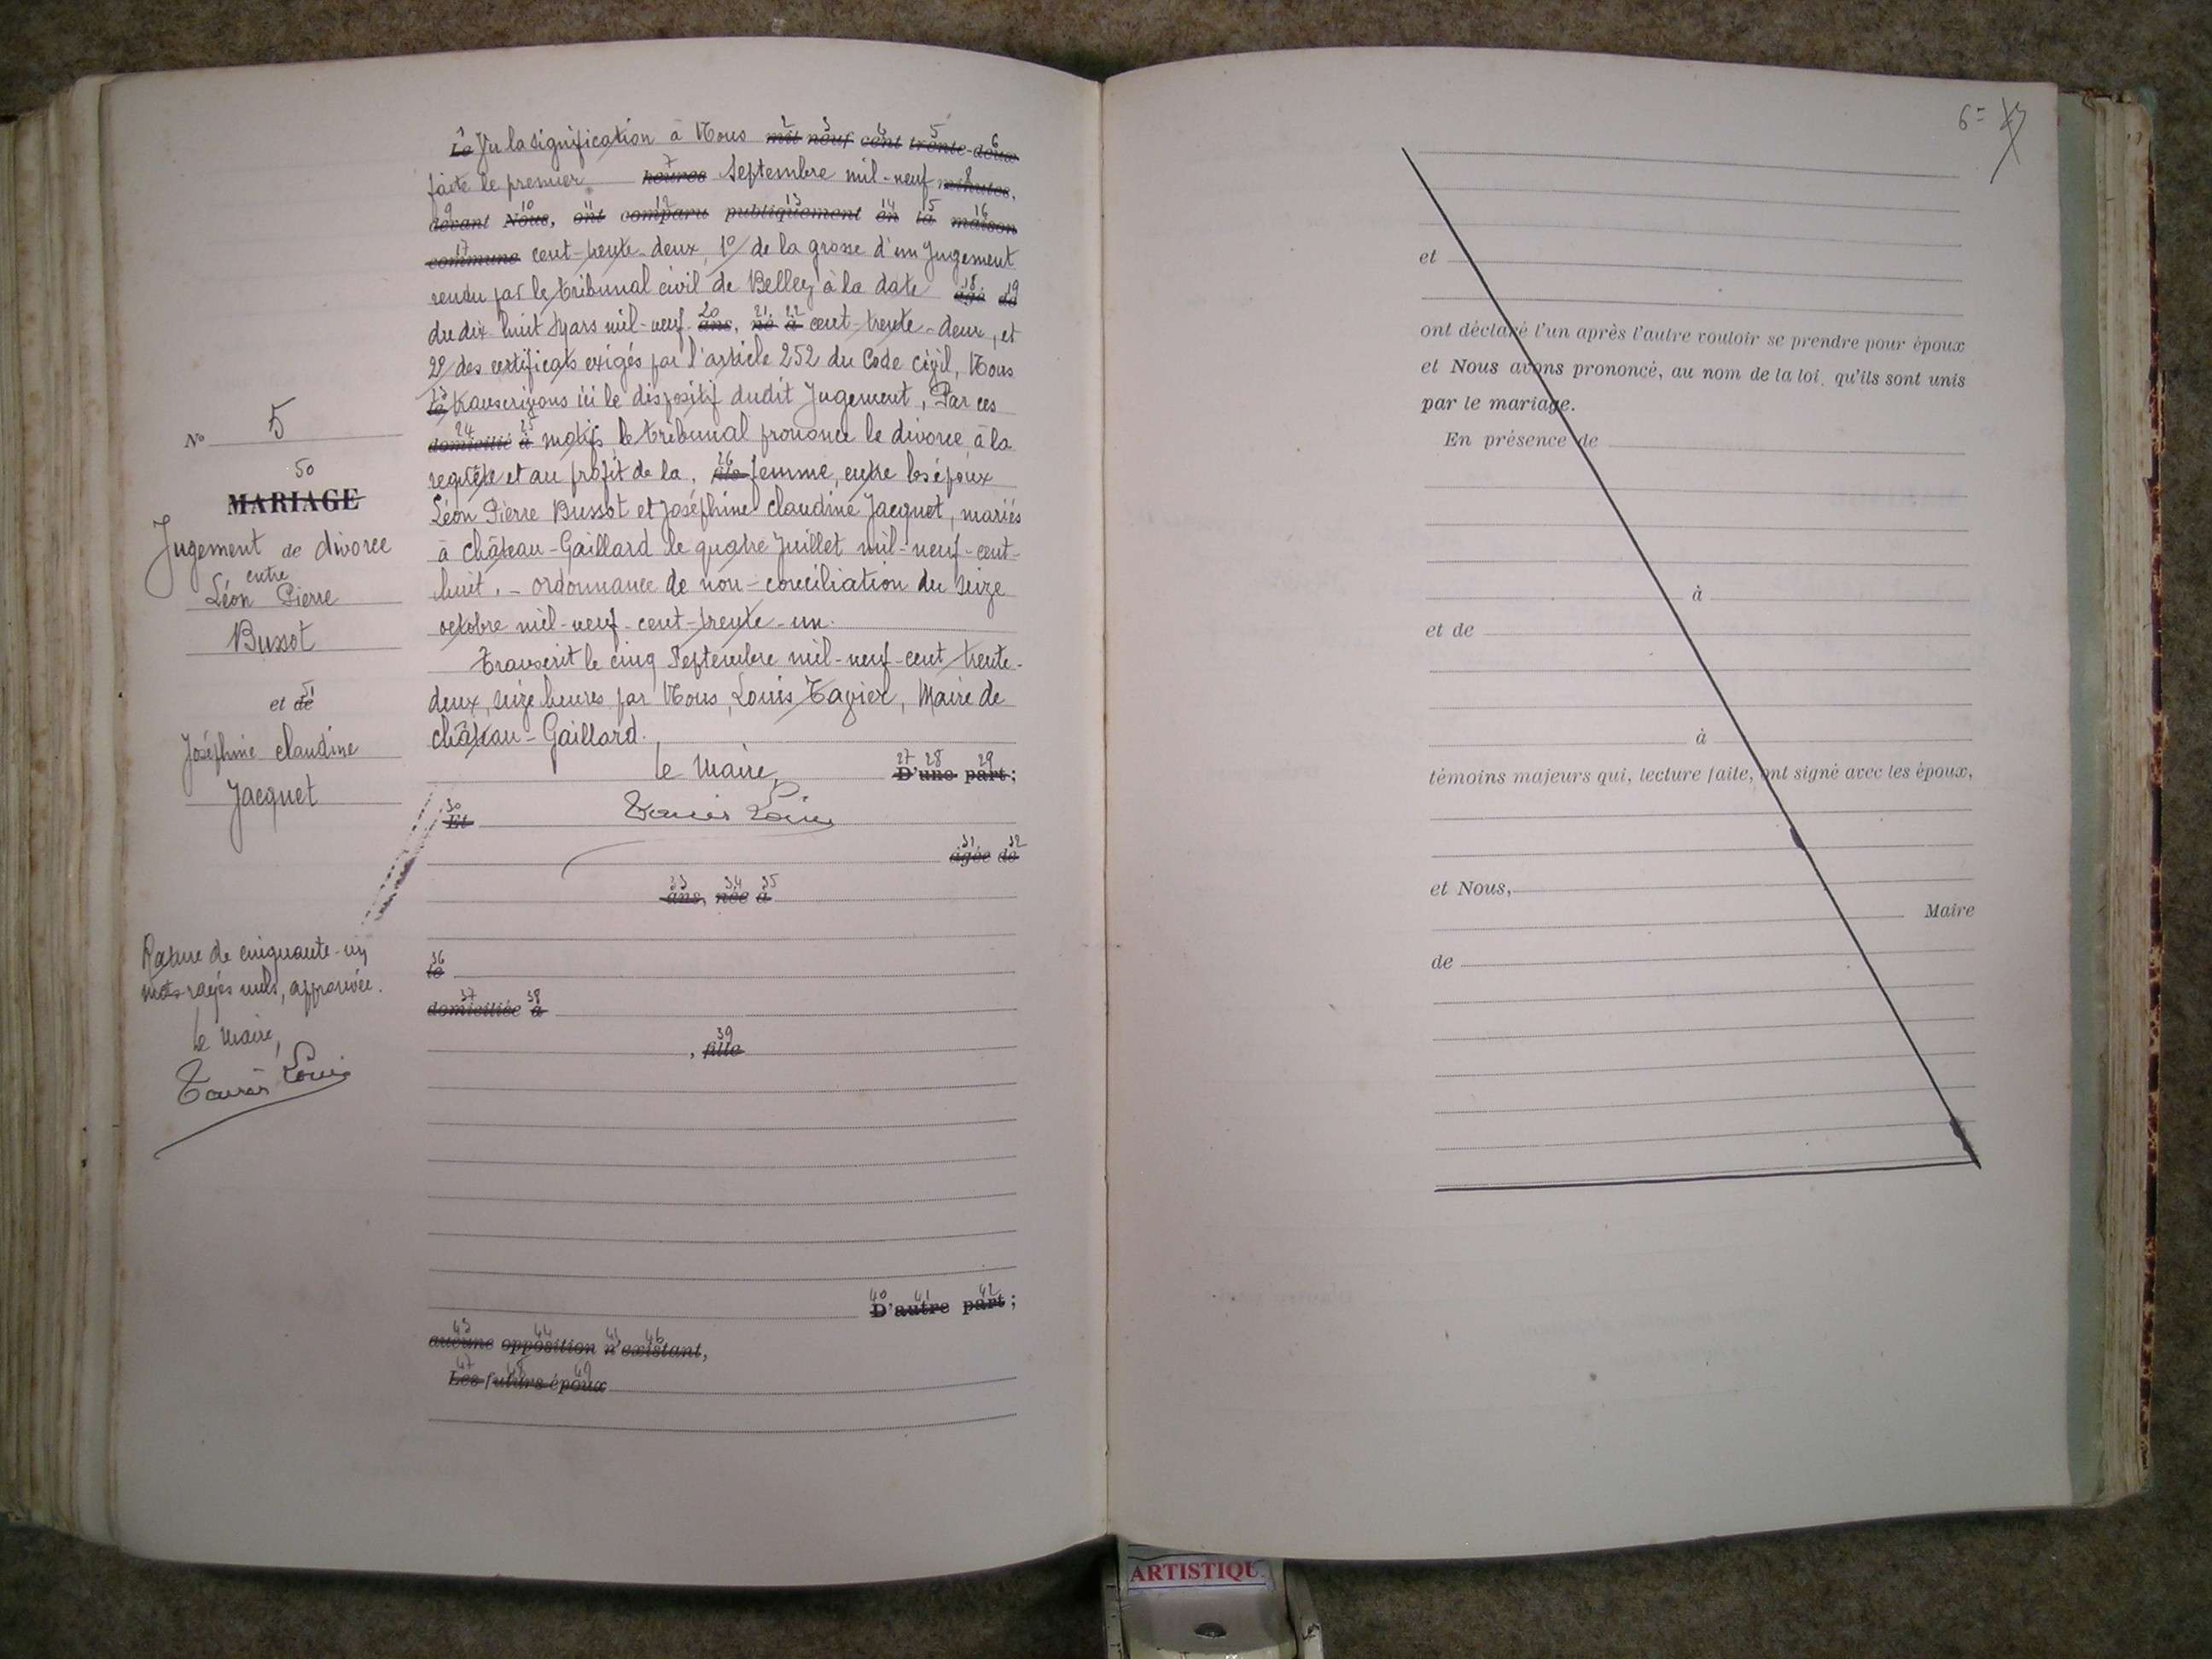 N° 5
50
MARIAGE
Jugement de divorce
entre
Léon Pierre
Bussot
51
et de
Joséphine Claudine
Jacquet
Rature de cinquante-un
mots rayés nuls, approuvée.
Le Maire,
Tavier Louis
Le Vu la signification à Nous mil neuf cent trente-deux
faite le premier heures Septembre mil-neuf minutes,
devant Nous, ont comparu publiquement en la maison
commune cent-trente-deux, 1° de la grosse d'un Jugement
rendu par le tribunal civil de Belley à la date âgé de
du dix huit Mars mil-neuf ans, né à cent-trente-deux, et
2° des certificats exigés par l'article 252 du Code Civil, Nous
le transcrivons ici le dispositif dudit Jugement, Par ces
domicilié à motifs, le tribunal prononce le divorce, à la
requête et au profit de la, fils femme, entre les époux
Léon Pierre Bussot et Joséphine Claudine Jacquet, mariés
à Château-Gaillard le quatre Juillet mil-neuf-cent-
huit. - ordonnance de non-conciliation du seize
octobre mil-neuf-cent-trente-un.
Transcrit le cinq Septembre mil-neuf-cent trente-
deux, seize heures, par Nous, Louis Tavier, Maire de
Château-Gaillard.
Le Maire,
27 28 29
D'une part;
30
Et
Tavier Louis
31 32
âgée de
33 34 35
ans, née à
36
le
37 38
domiciliée à
39
, fille
40 41 42
D'autre part;
43 44 45 46
aucune opposition n'existant,
47 48 49
Les futurs époux
6=
et
ont déclaré l'un après l'autre vouloir se prendre pour époux
et Nous avons prononcé, au nom de la loi, qu'ils sont unis
par le mariage.
En présence de
à
et de
à
témoins majeurs qui, lecture faite, ont signé avec les époux,
et Nous,
Maire
de
ARTISTIQU